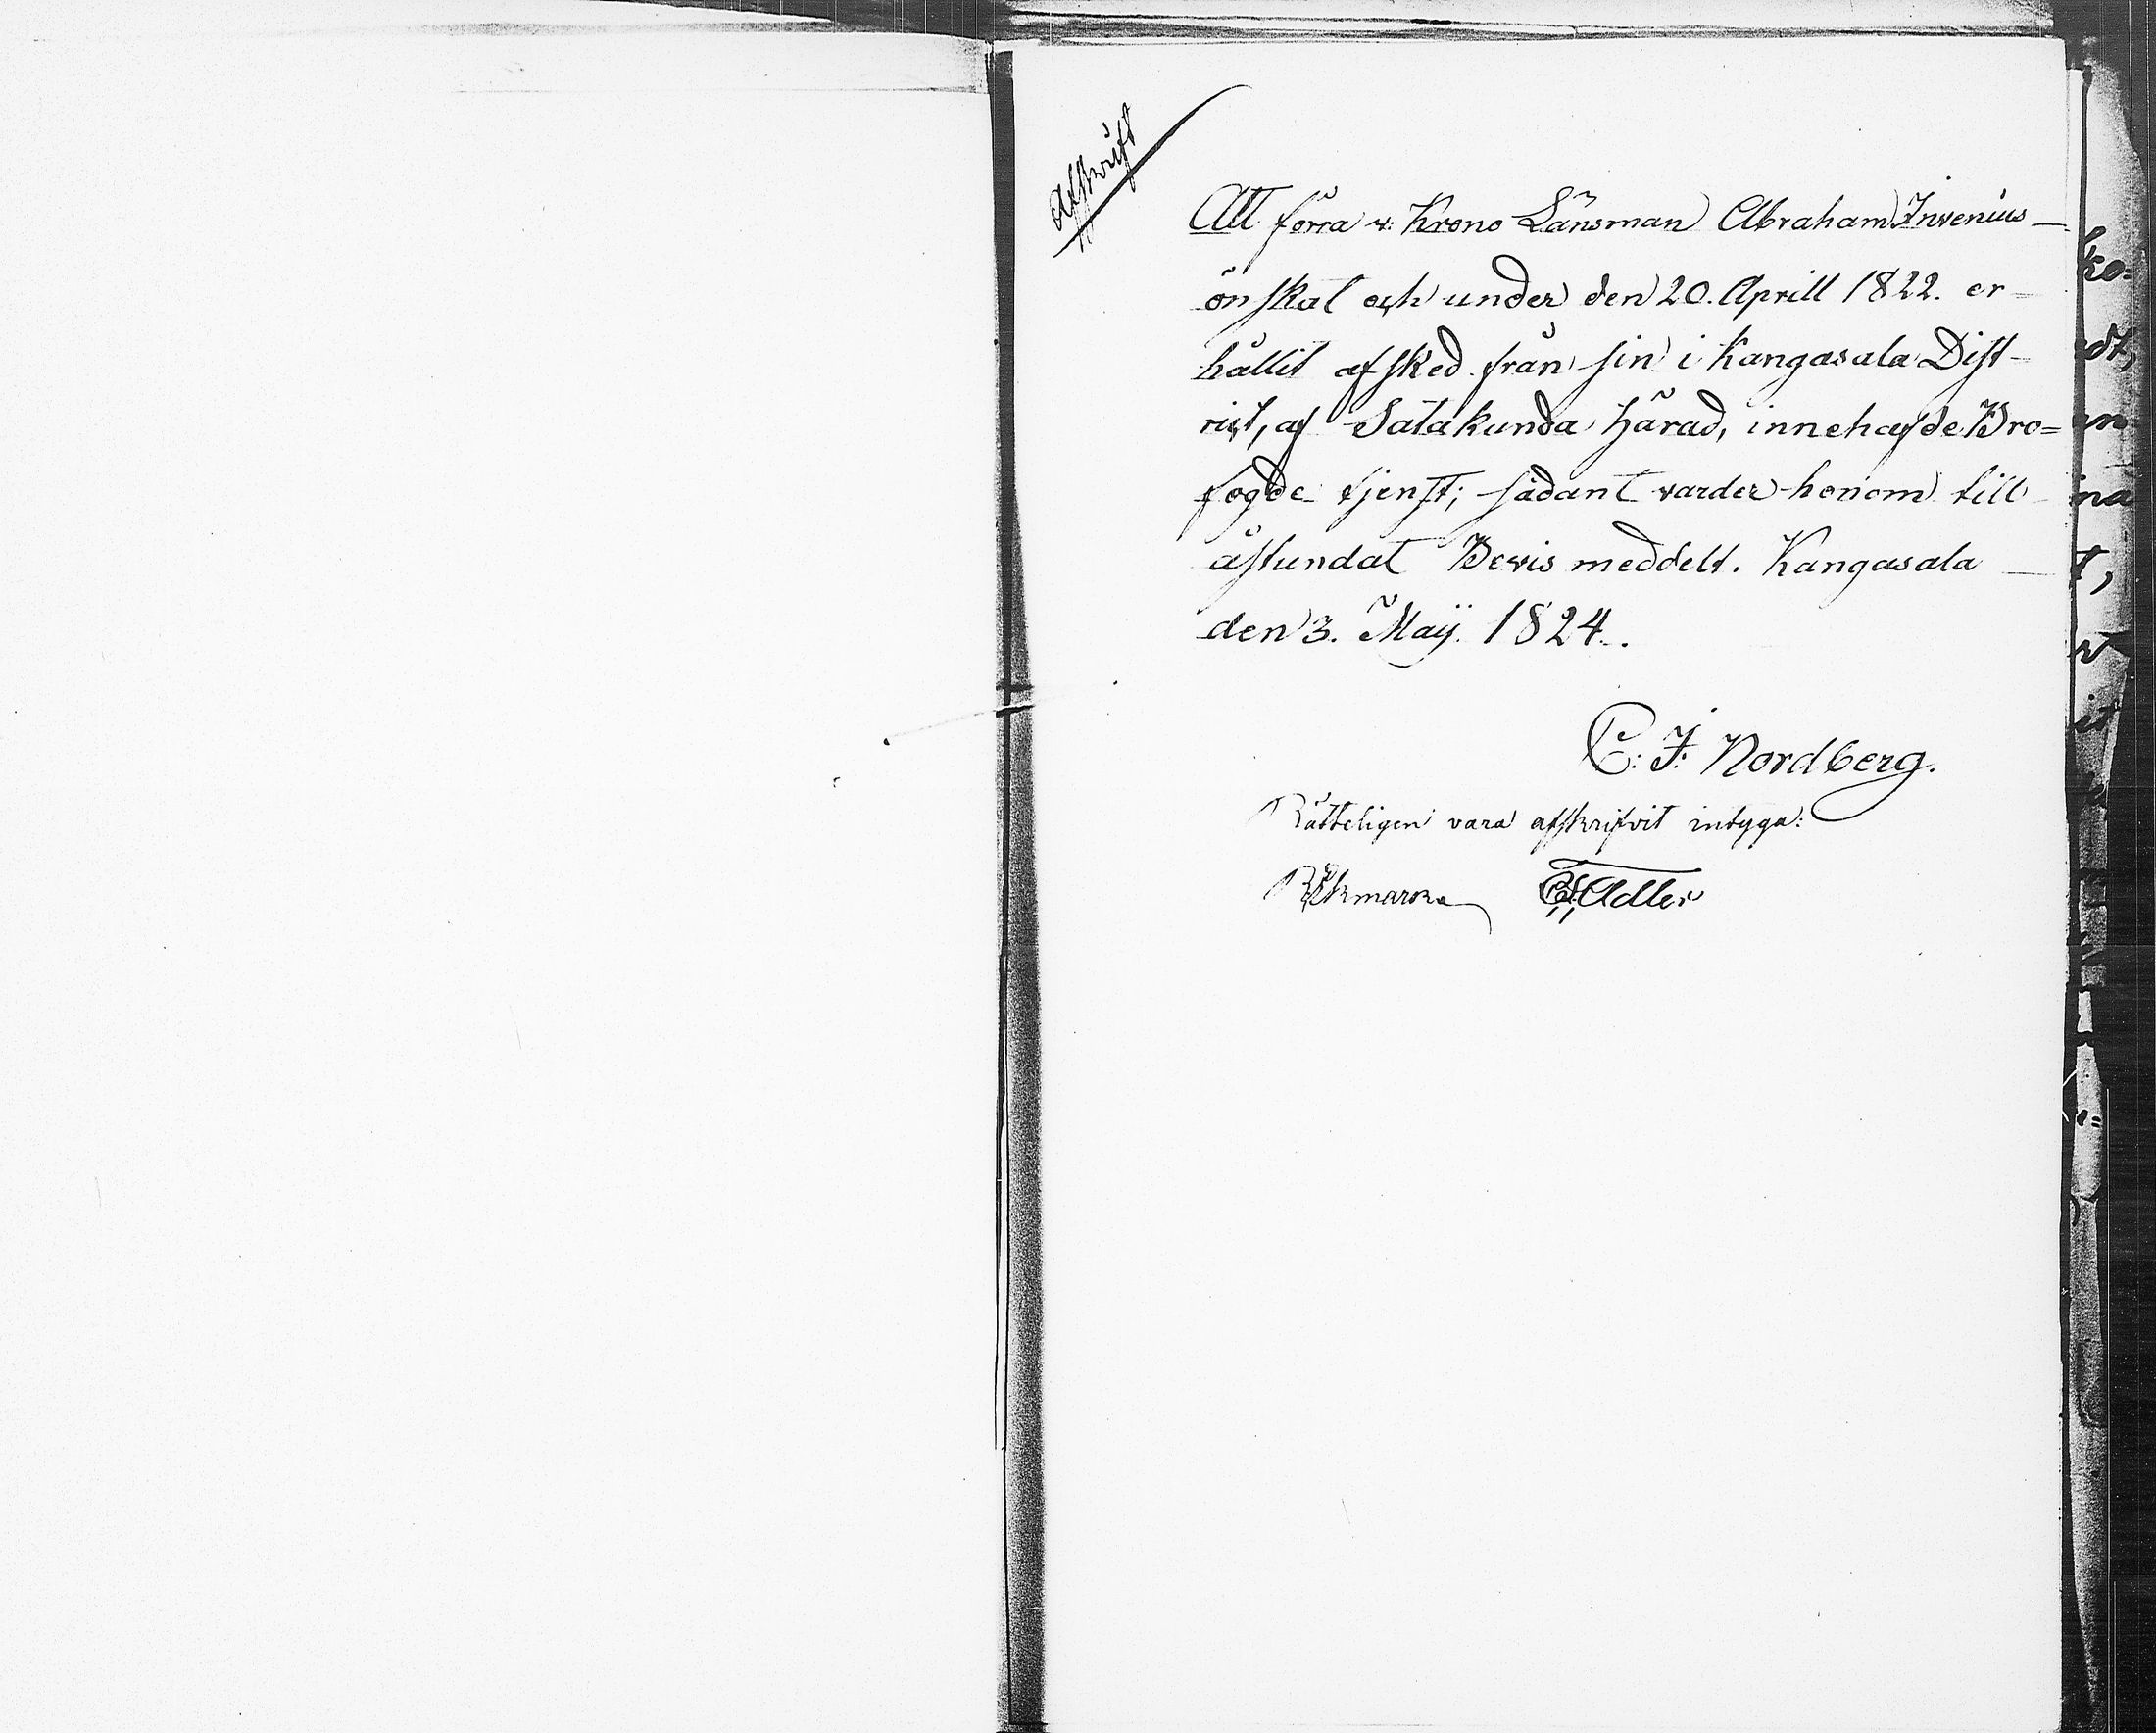 Afskrift
Att förra v: Krono Länsman Abraham Invenius
önskat och under den 20. Aprill 1822. er-
hållit afsked från sin i Kangasala Dist-
rict, af Satakunda Härad, innehafde Bro=
fogde tjenst; sådant varder honom till
åstundat Bevis meddelt. Kangasala
den 3. Maÿ 1824.
C: J: Nordberg.
Rätteligen vara afskrifvit intyga:
Adler